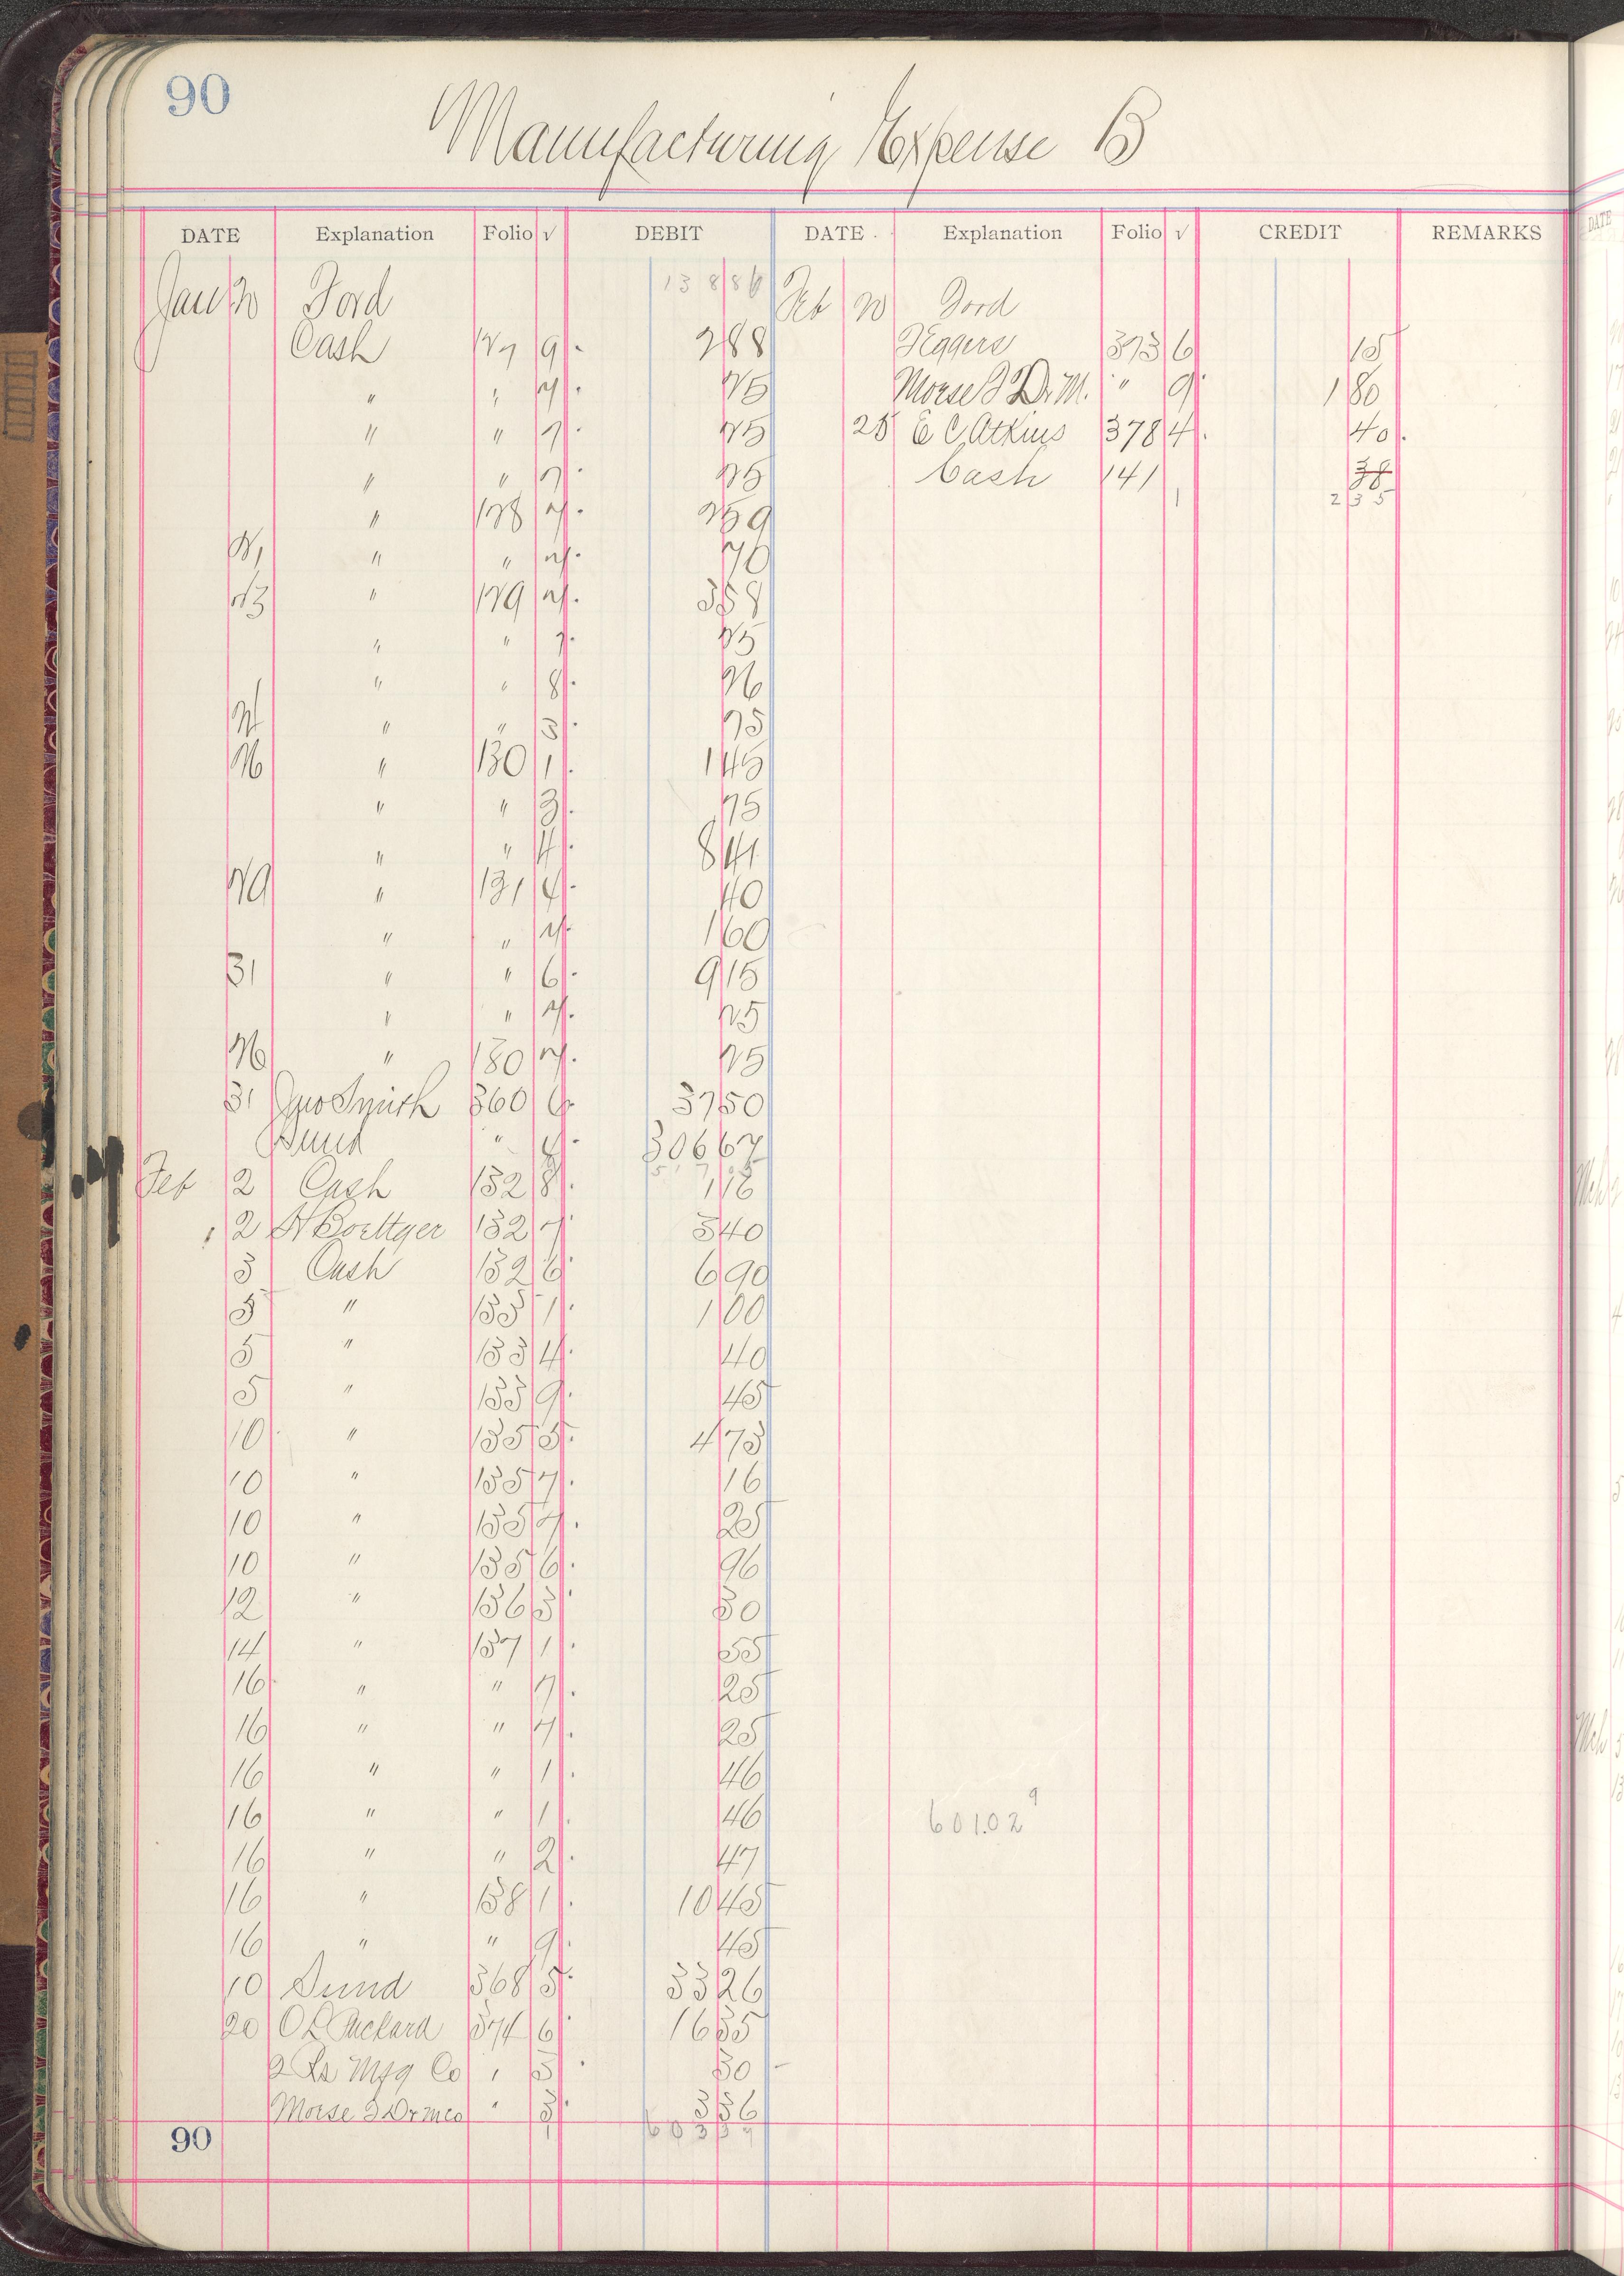 90
Manufacturing Expense B
DATE Explanation Folio √ DEBIT DATE Explanation Folio √ CREDIT REMARKS
Jan 20 Ford 138 86 Feb 20 Ford
Cash 127 9 2 88 F Eggers 373 6 15
" " 7 25 Morse T D. M. " 9 1 80
" " 7 25 25 E C Atkins 378 4 40
" " 7 25 Cash 141 38
" 128 7 2 59 1 2 35
21 " " 7 70
23 " 129 7 3 58
" " 7 25
" " 8 96
24 " " 3 75
26 " 130 1 1 45
" " 3 75
" " 4 8 41
29 " 131 4 40
" " 7 1 60
31 " " 6 9 15
" " 7 25
26 " 130 7 25
31 Jno Smith 360 6 37 50
Sund " 306 67
Feb 2 Cash 132 8 1 18
2 H Boettger 132 7 3 40
3 Cash 132 6 6 90
5 " 133 1 1 00
5 " 133 4 40
5 " 133 9 45
10 " 135 5 4 73
10 " 135 7 16
10 " 135 7 25
10 " 135 6 96
12 " 136 3 30
14 " 137 1 55
16 " " 7 25
16 " " 7 25
16 " " 1 46
16 " " 1 46 601.02 9
16 " " 2 47
16 " 138 1 10 45
16 " " 9 45
10 Sund 368 5 33 26
20 O L Packard 374 6 16 35
2 Rs Mfg Co " 5 30
Morse T Dr M Co " 3 3 36
90 603 37